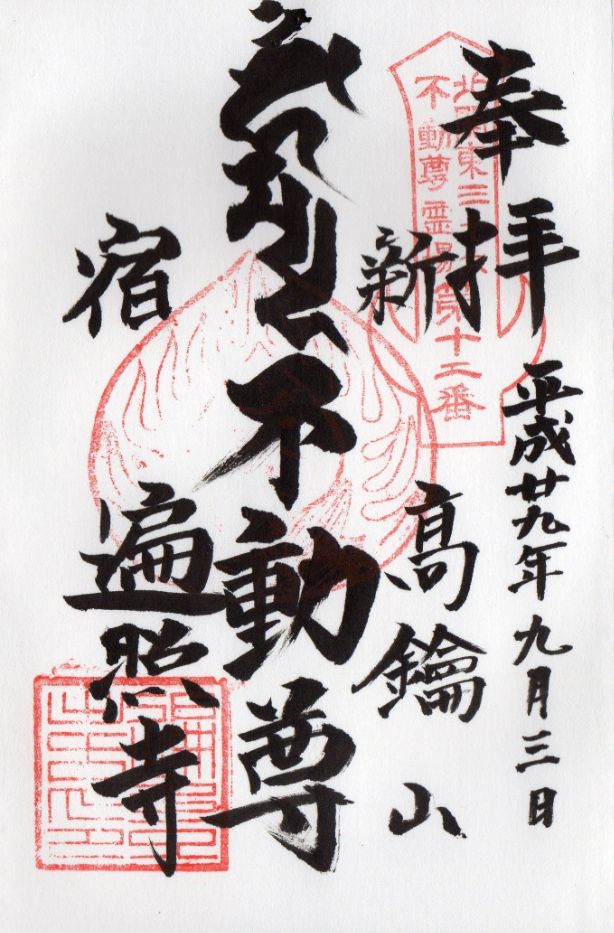 奉拝
平成廿九年九月三日
北関東三十六
不動尊霊場第十二番
新
高鑰山
不動尊
宿
遍照寺